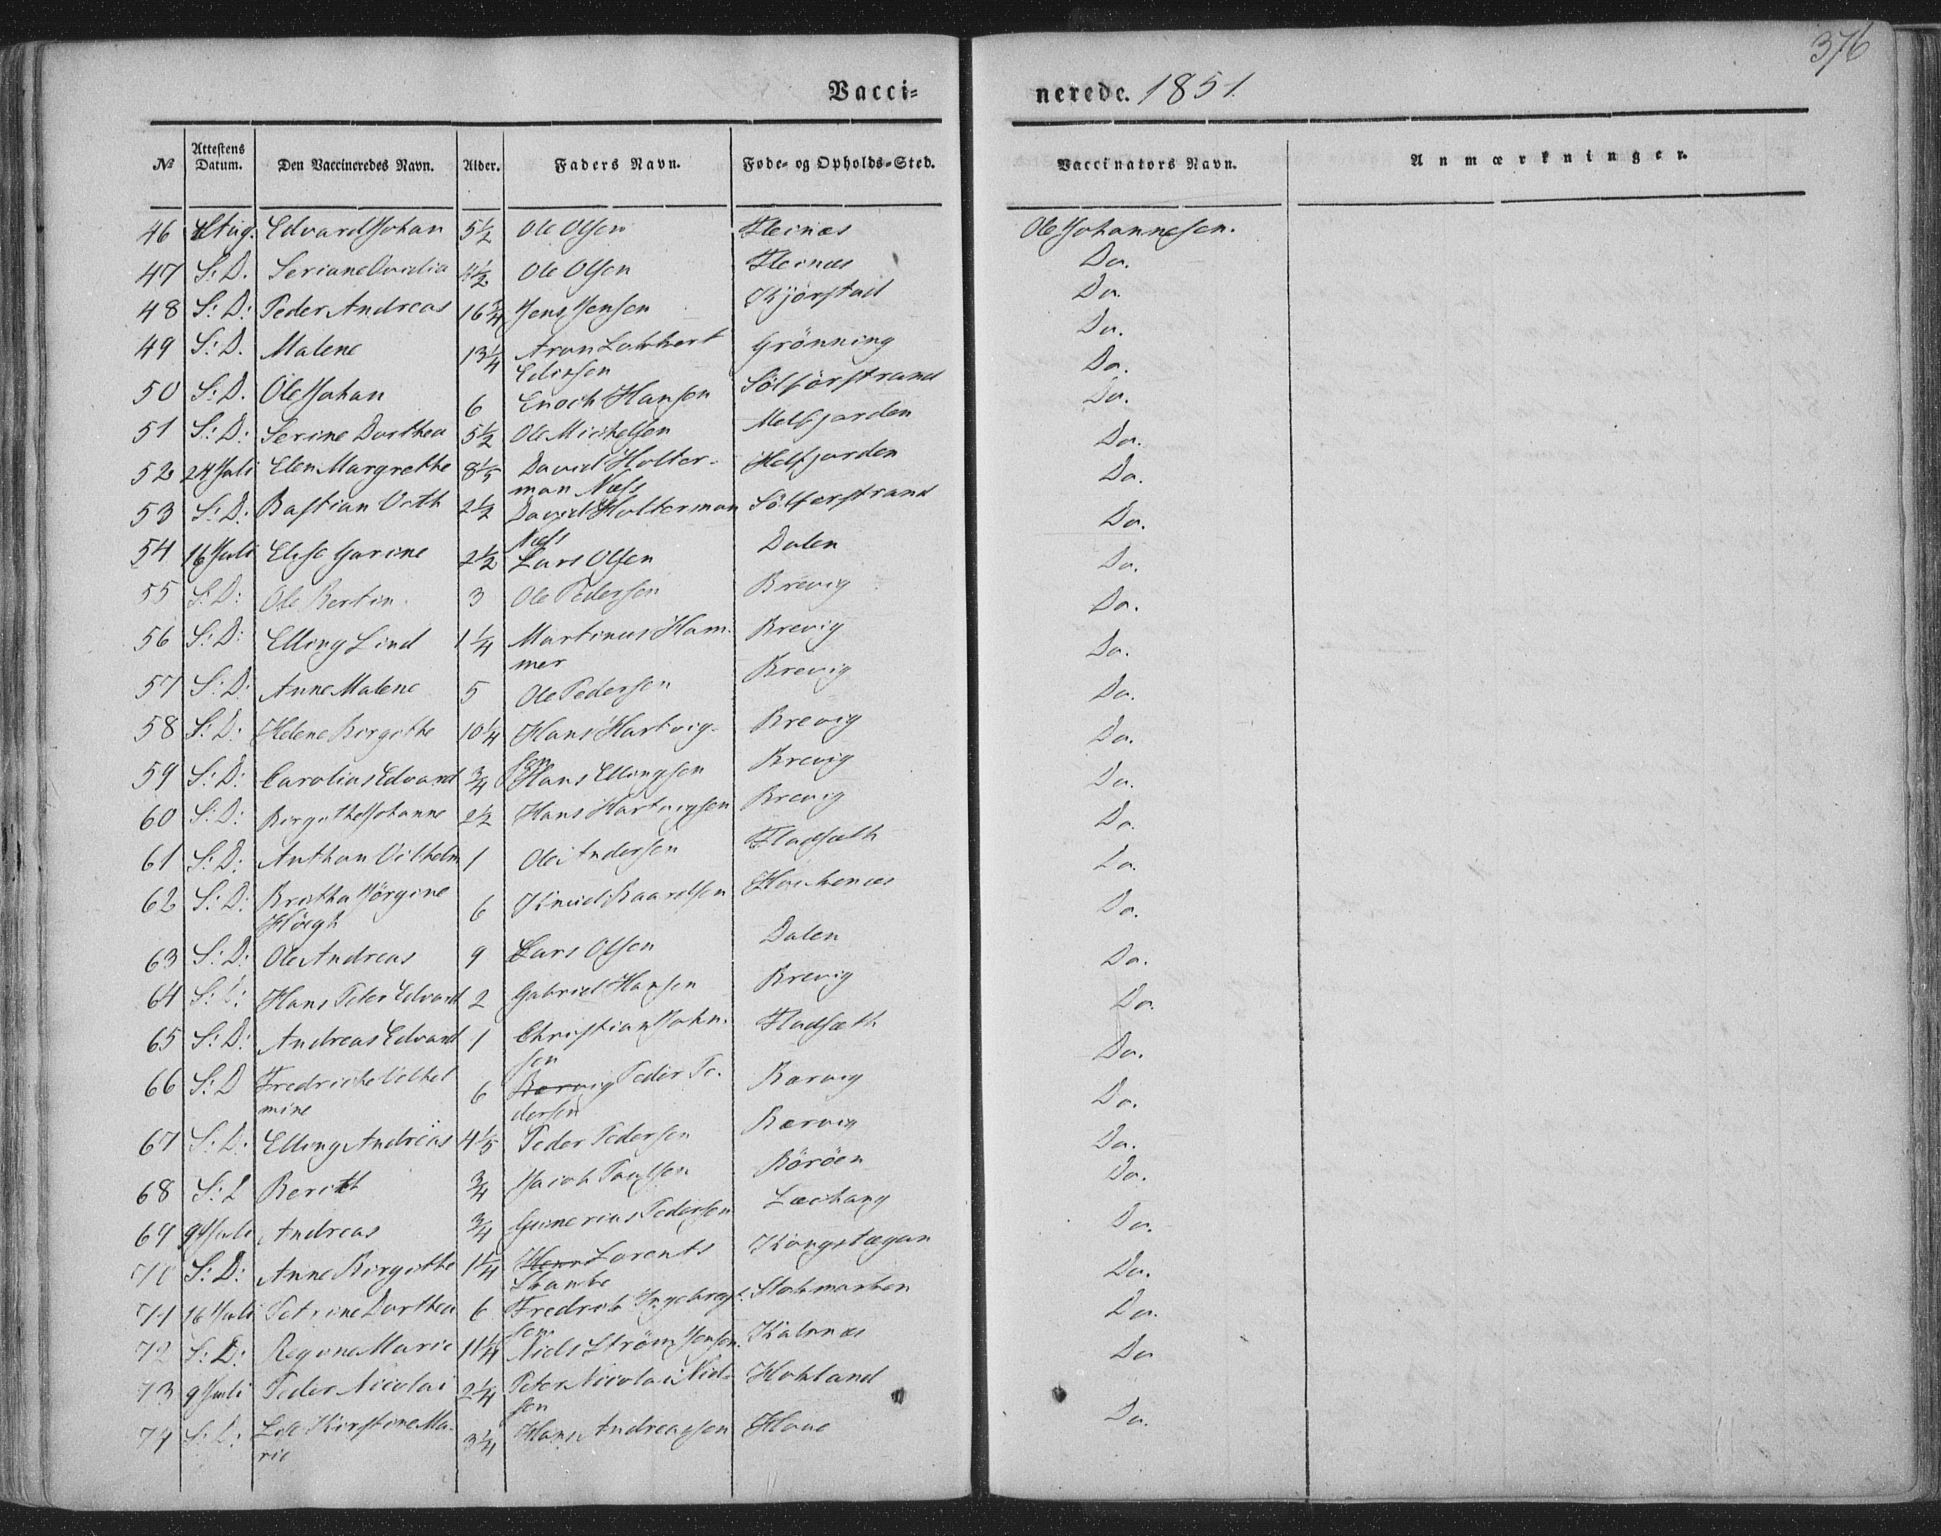 376
Vacci- nerede. 1851.
№ Attestens Datum. Den Vaccineredes Navn. Alder. Faders Navn. Føde- og Opholds-Sted. Vaccinators Navn. Anmærkninger.
46 Aug. Edvard Johan 5½ Ole Olsen Fleinæs Ole Johannesen.
47 S: D. Seriane Ovidia 4½ Ole Olsen Fleinæs Do.
48 S: D: Peder Andreas 16¾ Jens Jensen Kjörstad Do.
49 S: D. Malene 13¼ Aron Lobbert Grönning Do.
Edissen
50 S: D. Ole Johan 6 Enoch Hansen Sölförstrand Do.
51 S: D: Serine Dorthea 5½ Ole Mickelsen Melfjorden Do.
52 24 Juli Elen Margrethe 8⅓ David Holter- Melfjorden Do.
man Næss
53 S: D: Bastian Veth 2½ David Holterman Sölferstrand Do.
Næss
54 16 Juli Elise Garine 2½ Lars Olsen Dalen Do.
55 S: D: Ole Bertin 3 Ole Pedersen Brevig Do.
56 S: D: Elling Lind 1¼ Martinus Ham- Brevig Do.
mer
57 S: D: Anne Malene 5 Ole Pedersen Brevig Do.
58 S: D: Helene Birgitte 10¼ Hans Hartvig- Brevig Do.
sen
59 S: D: Carolius Edvard ¾ Hans Ellingsen Brevig Do.
60 S: D: Birgithe Johanne 2½ Hans Hartvigsen Brevig Do.
61 S: D: Anthon Vilhelm 1 Ole Andersen Fladsæth Do.
62 S: D: Bertha Jörgine 6 Knud Baardsen Do.
Höegh
63 S: D: Ole Andreas 9 Lars Olsen Dalen Do.
64 S: D: Hans Peter Edvard 2 Gabriel Hansen Brevig Do.
65 S: D: Andreas Edvard 1 Christian John- Fladsæth Do.
sen
66 S: D Fredricke Vilhel 6 Bærvig Peder Pe- Barvig Do.
mine dersen
67 S: D: Elling Andreas 4⅓ Peder Pedersen Bærvig Do.
68 S: D Berith ¾ Jacob Paulsen Böröen Do.
69 9 Juli Andreas ¾ Gunerius Pedersen Læchang Do.
70 S: D: Anne Birgitthe 1¼ Lorents Kongstægan Do.
Skanke
71 16 Juli Petrine Dorthea 6 Fredrik Ingebrigt- Stokmarken Do.
sen
72 S: D: Regine Marie 11¼ Niels Ström Jensen Kalnnæs Do
73 9 Juli Peder Nicolai 2¼ Peter Nicolai Niel- Hokland
sen
74 S: D: Lise Kirstine Ma- 3¼ Hans Andreassen Haue Do.
rie